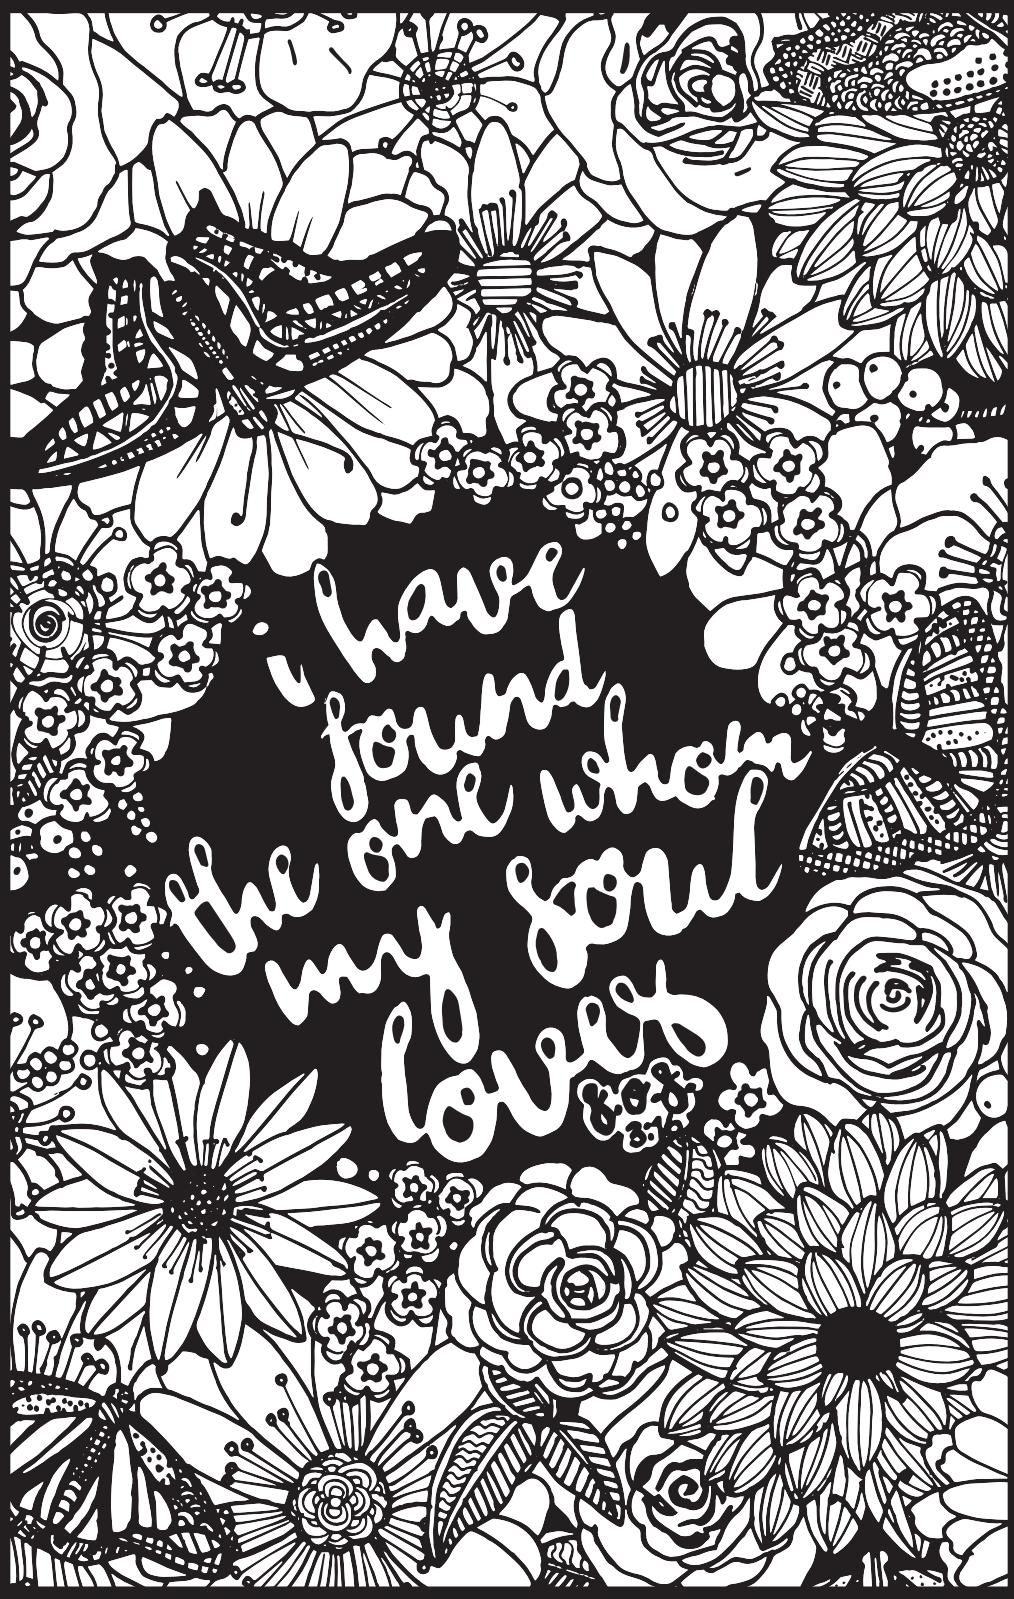 i have
found
the one whom
my soul
loves
s.o.s
3:4